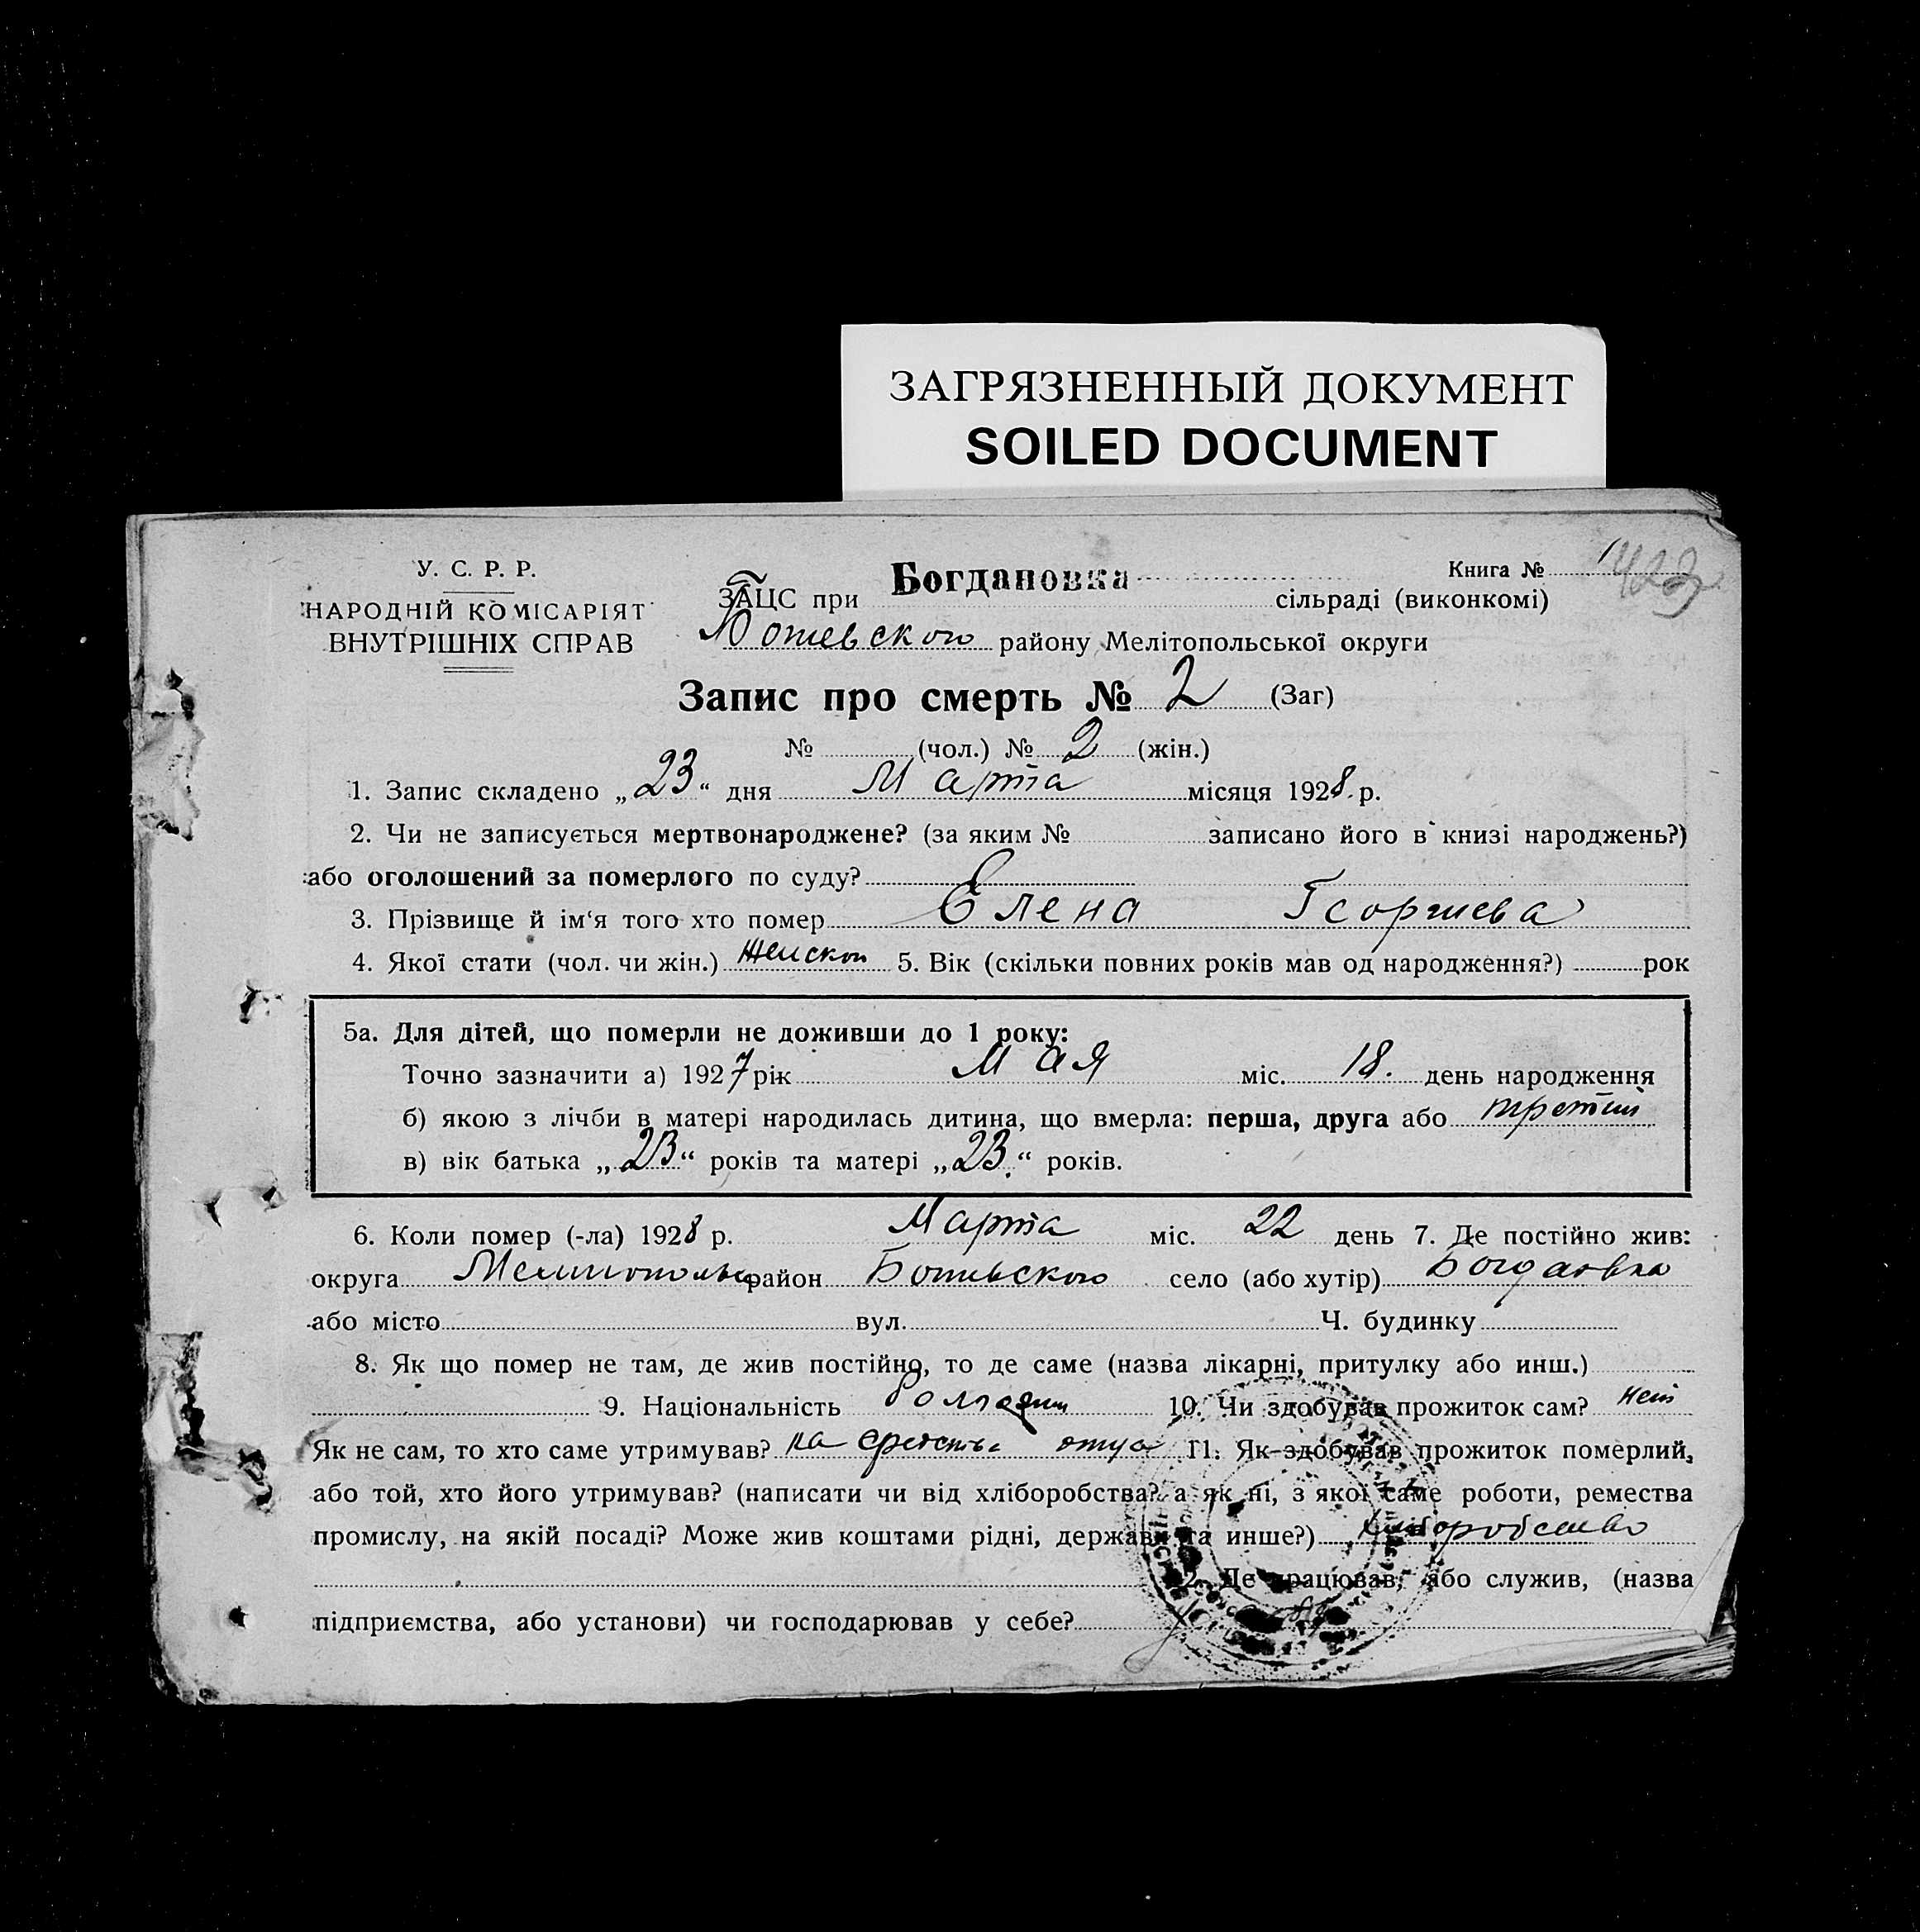 ЗАГРЯЗНЕННЫЙ ДОКУМЕНТ
SOILED DOCUMENT
У. С. Р. Р.
НАРОДНІЙ КОМІСАРІЯТ
ВНУТРІШНІХ СПРАВ
Книга №
ЗАЦС при Богдановка сільраді (виконкомі)
Ботевского району Мелітопольської округи
Запис про смерть № 2 (Заг)
№ (чол.) № 2 (жін.)
1. Запис складено „23“ дня Марта місяця 1928 р.
2. Чи не записується мертвонароджене? (за яким № записано його в книзі народжень?)
або оголошений за померлого по суду?
3. Прізвище й ім‘я того хто помер Елена Георгиева
4. Якої стати (чол. чи жін.) Женской 5. Вік (скільки повних років мав од народження?) рок
5а. Для дітей, що померли не доживши до 1 року:
Точно зазначити а) 1927 рік Мая міс. 18. день народження
б) якою з лічби в матері народилась дитина, що вмерла: перша, друга або третий
в) вік батька „23“ років та матері „23.“ років.
6. Коли помер (-ла) 1928 р. Марта міс. 22 день 7. Де постійно жив:
округа район Ботевского село (або хутір)
або місто вул. Ч. будинку
8. Як що помер не там, де жив постійно, то де саме (назва лікарні, притулку або инш.)
9. Національність 10. Чи здобував прожиток сам? нет
Як не сам, то хто саме утримував? на средства отца 11. Як здобував прожиток померлий,
або той, хто його утримував? (написати чи від хліборобства? а як ні, з якої саме роботи, ремества
промислу, на якій посаді? Може жив коштами рідні, держави та инше?) хліборобство
12. Де працював, або служив, (назва
підприємства, або установи) чи господарював у себе?